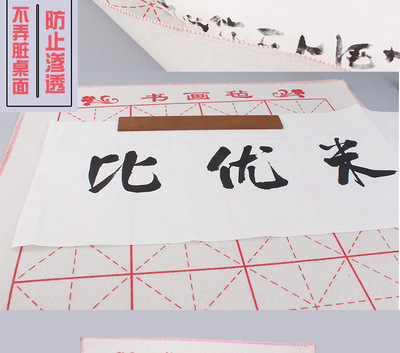 防止渗透
不弄脏桌面
书画毡
比优米